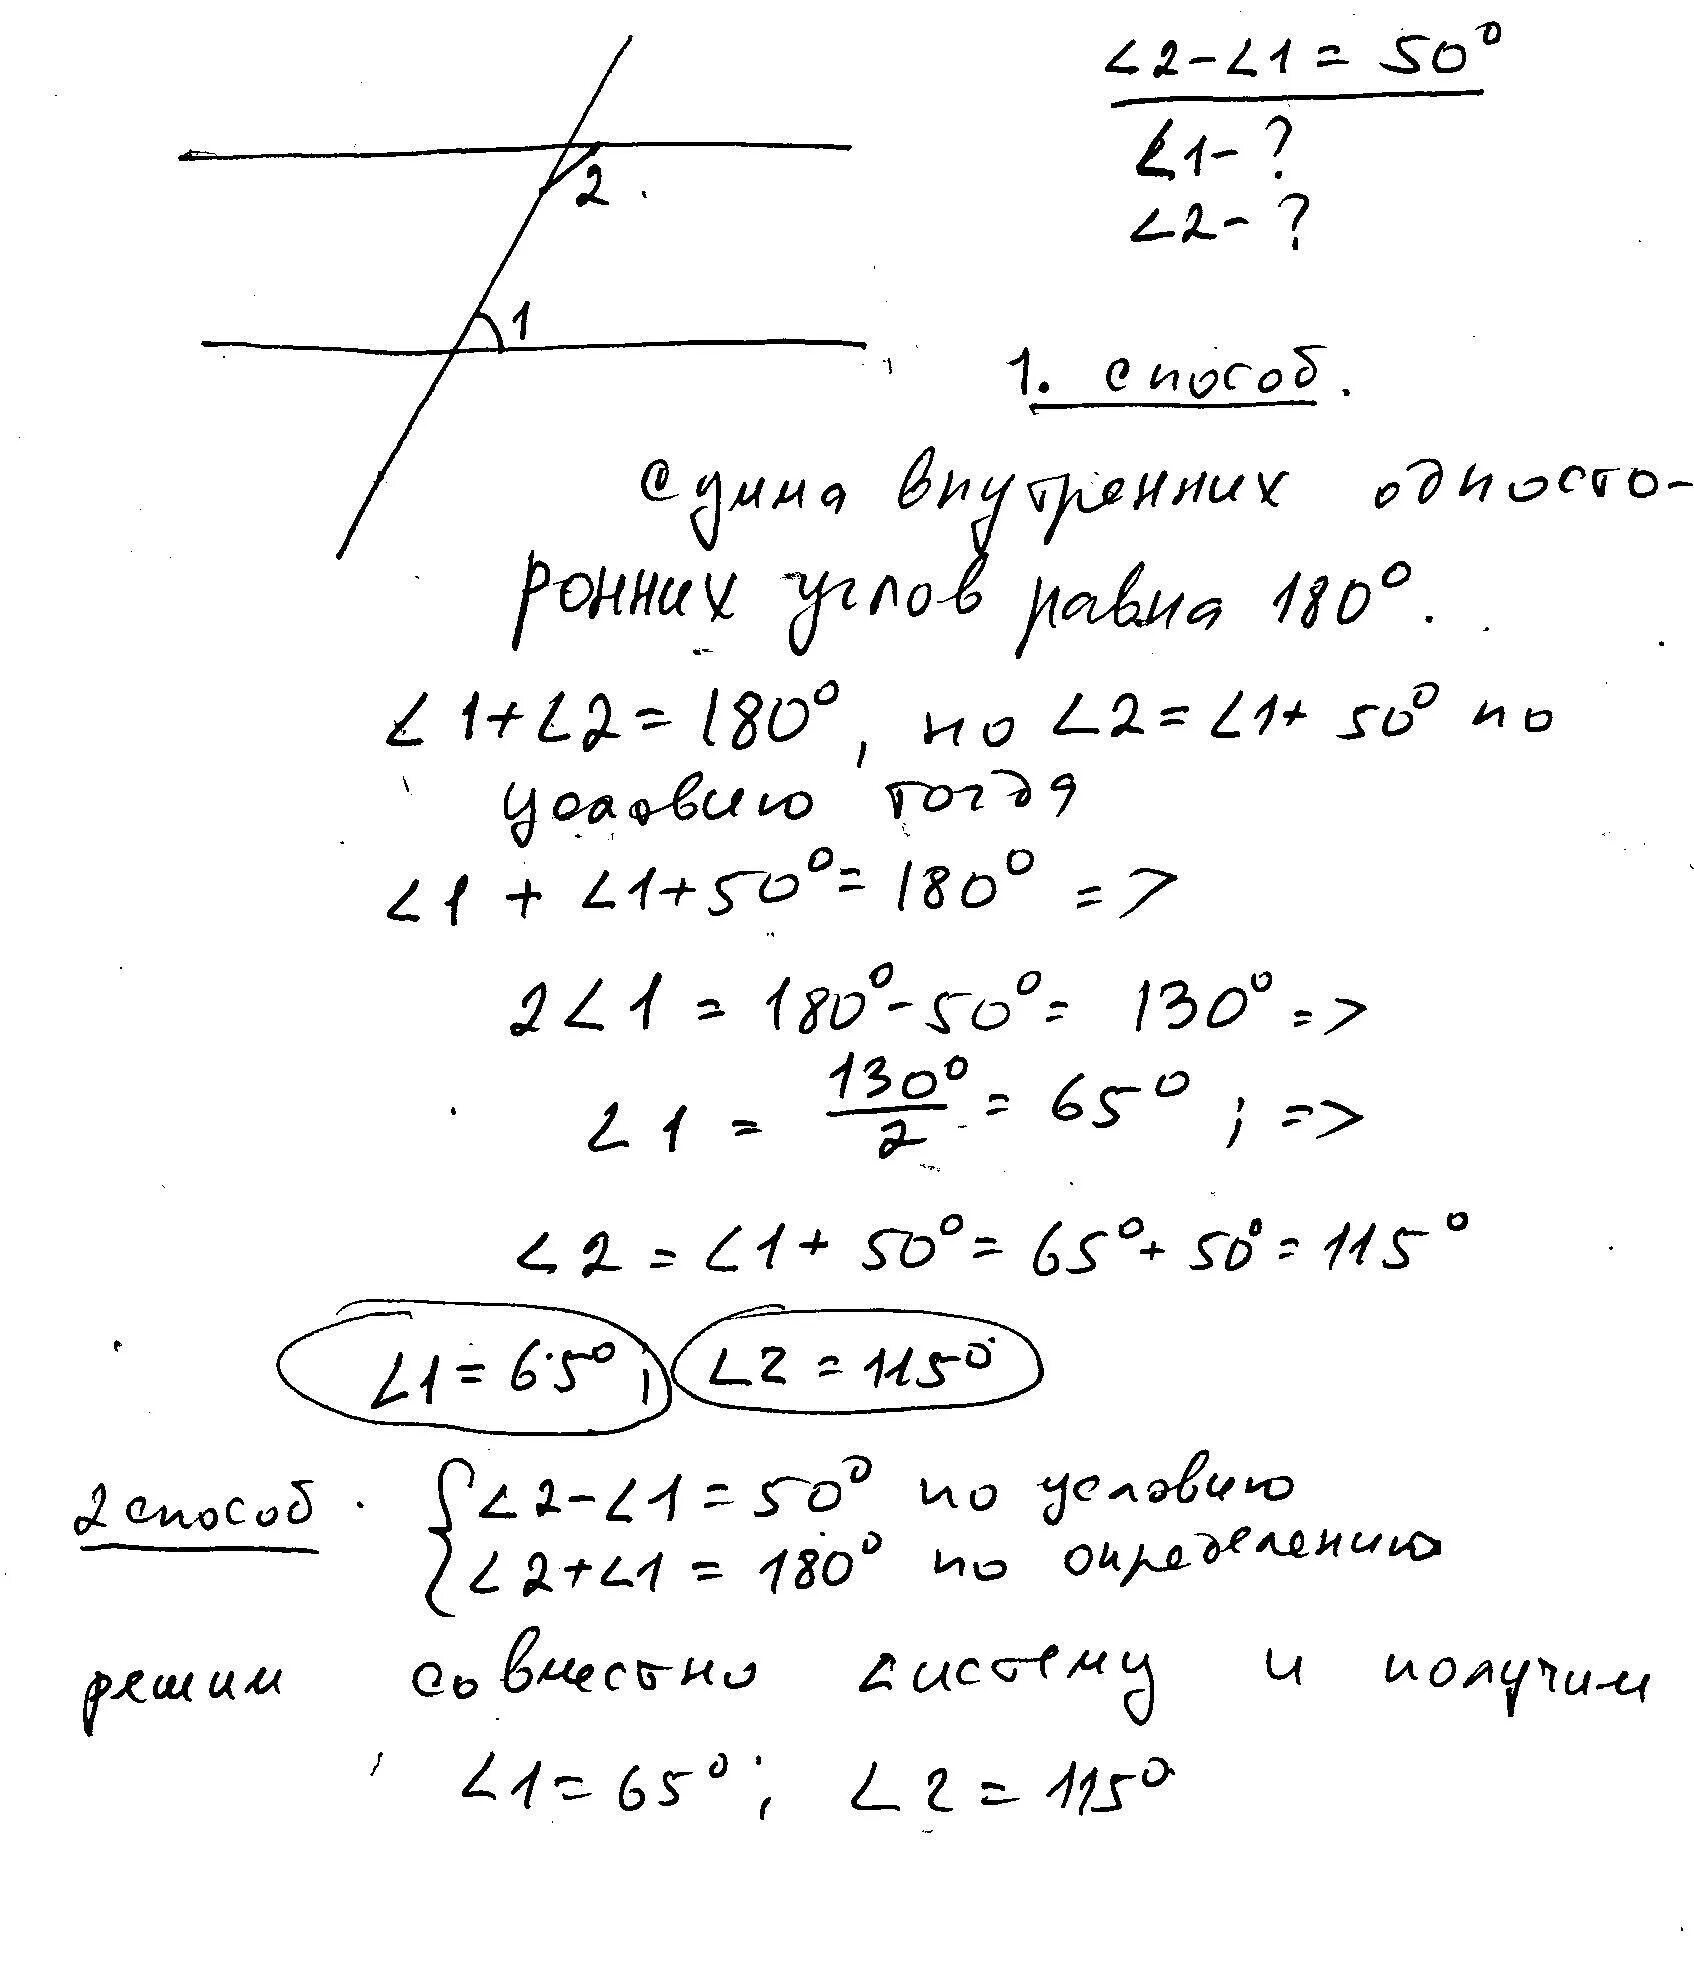 ∠2-∠1 = 50°
∠1 - ?
∠2 - ?
2
1
1. способ.
Сумма внутренних односто-
ронних углов равна 180°.
∠1+∠2 = 180°, но ∠2 = ∠1+ 50° по
условию тогда
∠1 + ∠1+50° = 180° =>
2∠1 = 180°-50° = 130° =>
∠1 = 130°/2 = 65° ; =>
∠2 = ∠1 + 50° = 65°+ 50° = 115°
∠1 = 65° ; ∠2 = 115°
2 способ. { ∠2-∠1 = 50° по условию
∠2+∠1 = 180° по определению
решим совместно систему и получим
∠1 = 65° ; ∠2 = 115°